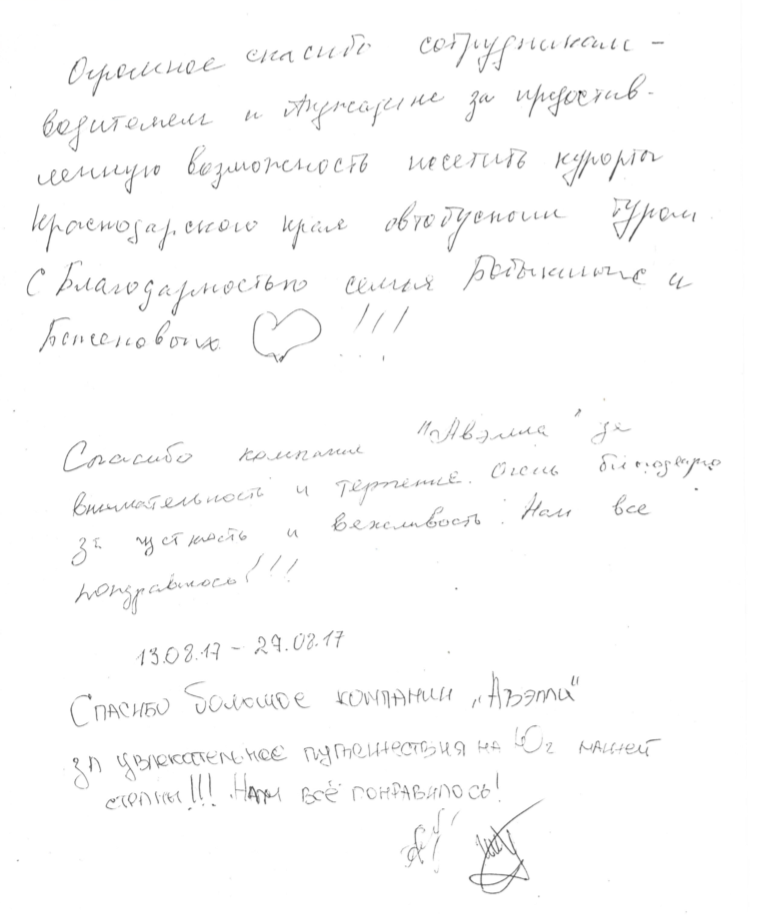 Огромное спасибо сотрудникам –
водителям и за предостав-
ленную возможность посетить курорты
Краснодарского края автобусным туром
С Благодарностью семья и
Баженовых !!!
Спасибо компании "Авэлла" за
внимательность и терпение. Очень благодарю
за чуткость и вежливость. Нам все
понравилось!!!
13.08.17 – 29.08.17
Спасибо большое компании „Авэлла"
за увлекательное путешествия на Юг нашей
страны!!! Нам всё понравилось!